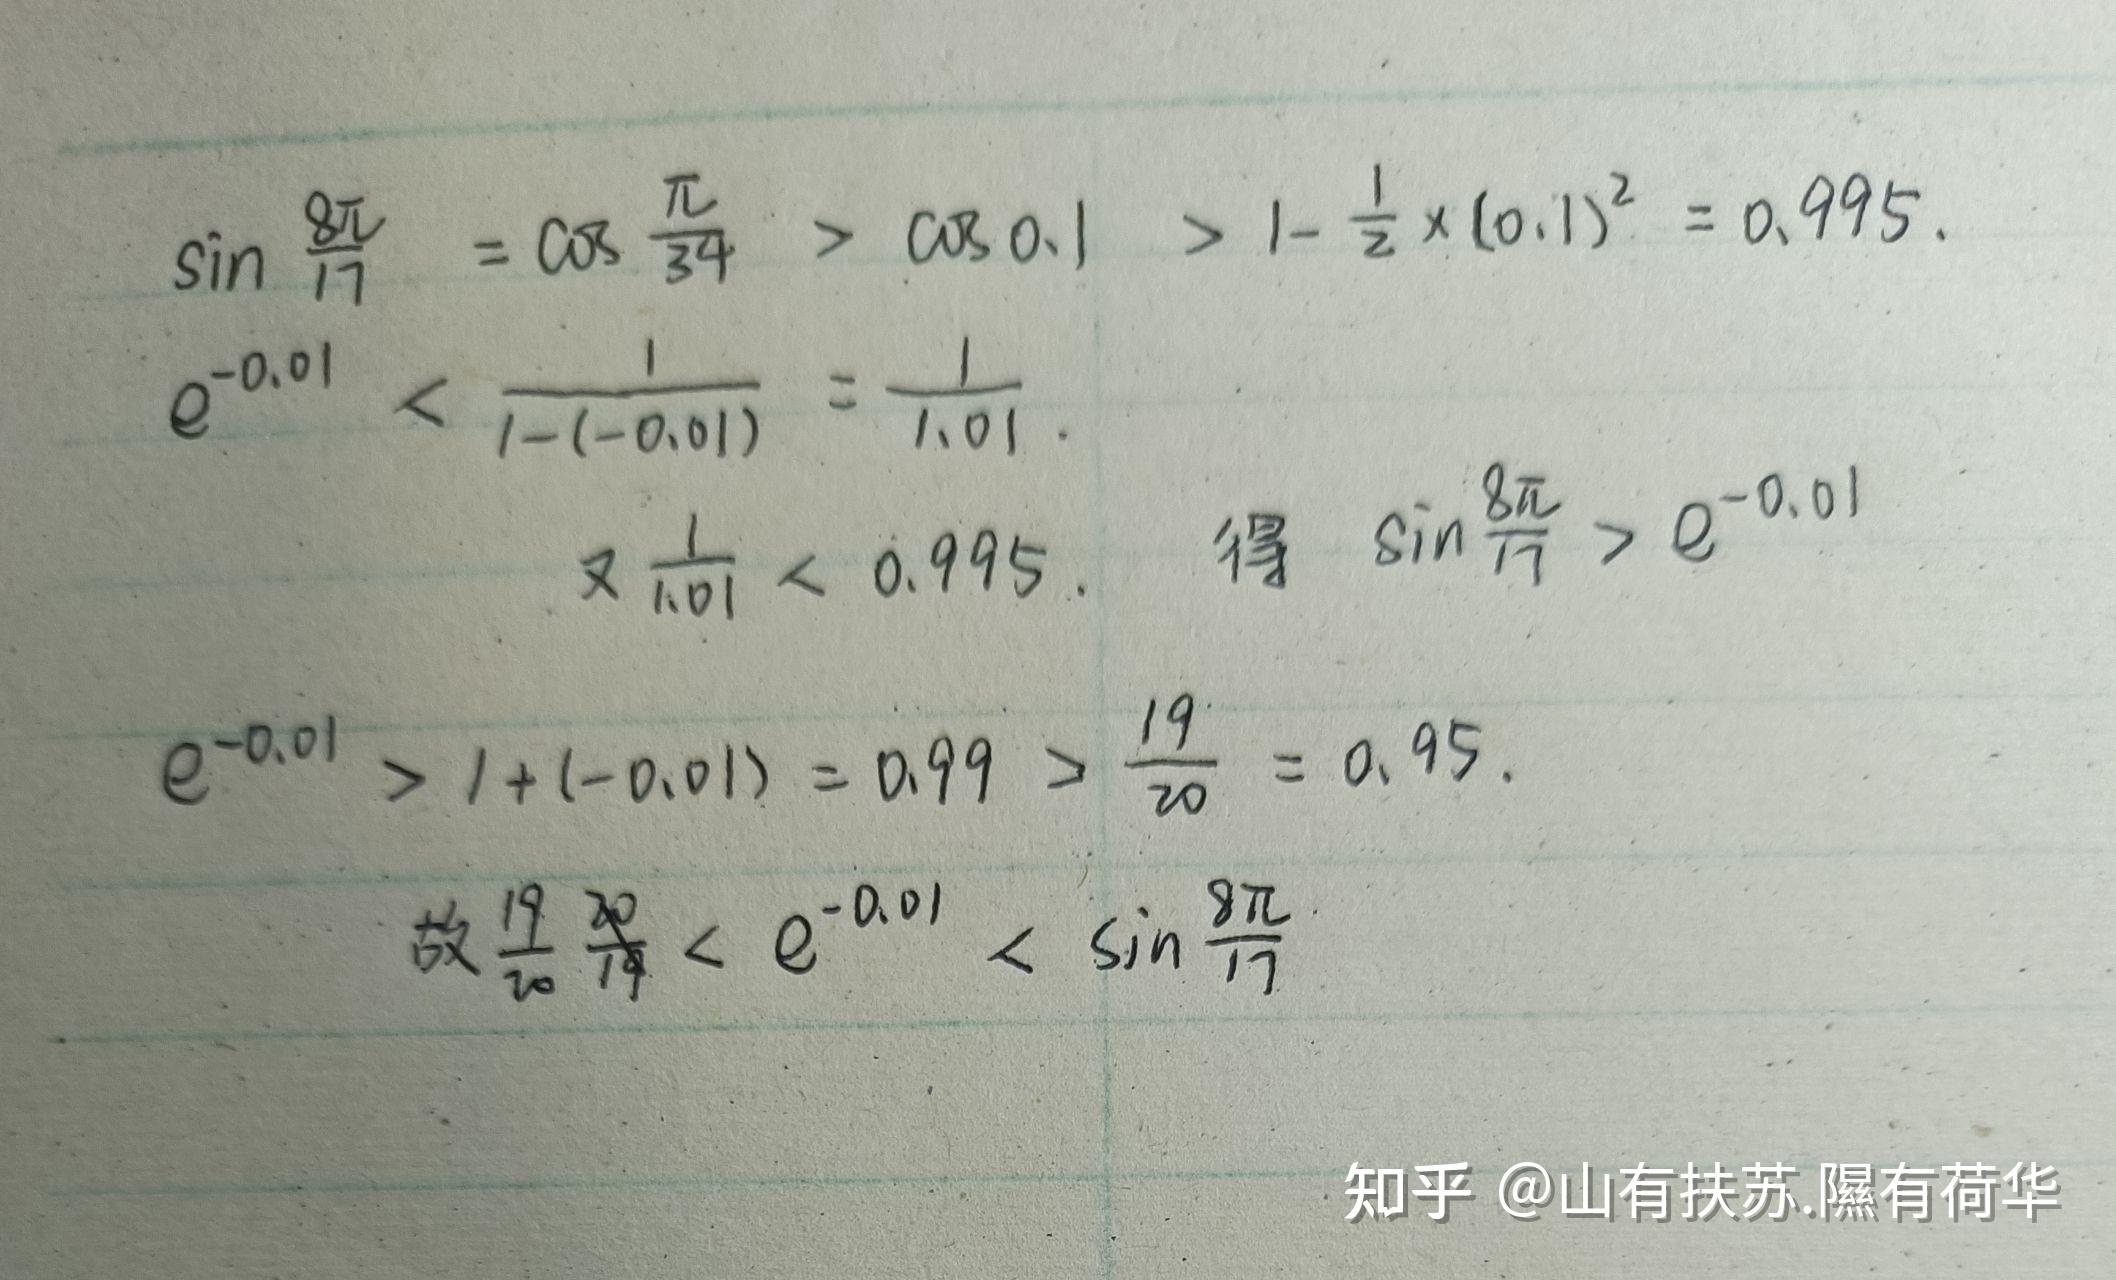 sin 8π/17 = cos π/34 > cos 0.1 > 1 - 1/2 × (0.1)² = 0.995.
e^{-0.01} < 1/(1-(-0.01)) = 1/1.01.
又 1/1.01 < 0.995. 得 sin 8π/17 > e^{-0.01}
e^{-0.01} > 1+(-0.01) = 0.99 > 19/20 = 0.95.
故 19/20 20/19 < e^{-0.01} < sin 8π/17
知乎 @山有扶苏.隰有荷华